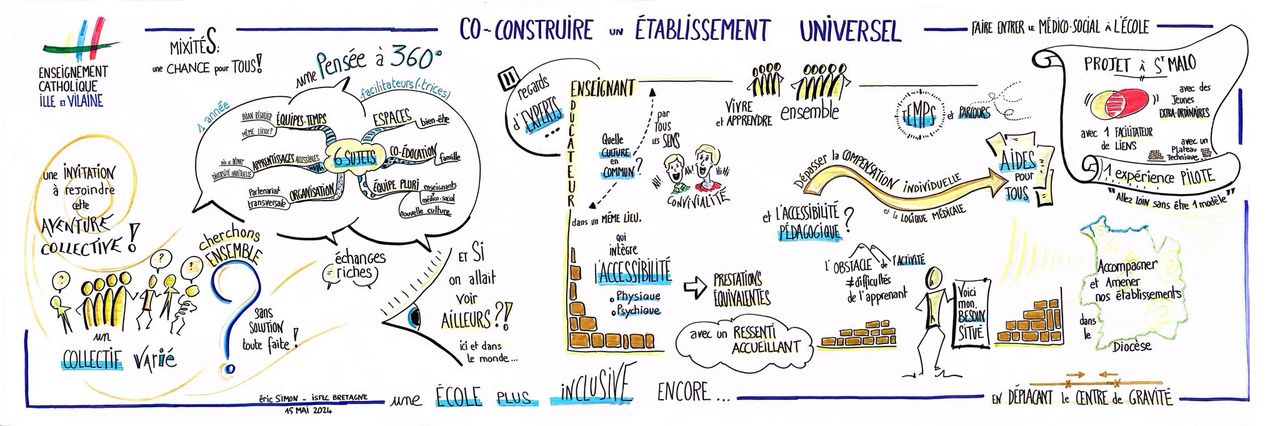 CO-CONSTRUIRE UN ÉTABLISSEMENT UNIVERSEL
FAIRE ENTRER LE MÉDICO-SOCIAL À L'ÉCOLE
ENSEIGNEMENT
CATHOLIQUE
ILLE ET VILAINE
MIXITÉS:
une CHANCE pour TOUS!
une INVITATION
à rejoindre
cette
AVENTURE
COLLECTIVE!
un
COLLECTIF varié
1 année
une Pensée à 360°
facilitateurs(-trices)
6 SUJETS
ÉQUIPES-TEMPS
ESPACES
bien-être
APPRENTISSAGES ACCESSIBLES
CO-ÉDUCATION
famille
Partenariat
transversale
ORGANISATION
ÉQUIPE PLURI
enseignants
médico-social
nouvelle culture
échanges
riches
cherchons
ENSEMBLE
?
sans
SOLUTION
toute faite!
ET SI
on allait
voir
AILLEURS?!
ici et dans
le monde...
regards
d'EXPERTS
...
ENSEIGNANT
DUCATEUR
Quelle
CULTURE
en
COMMUN?
par
TOUS
LES SENS
dans un MÊME LIEU.
qui
intègre
L'ACCESSIBILITÉ
Physique
Psychique
VIVRE
et APPRENDRE
ensemble
AH!
Ah!
Hi!
CONVIVIALITÉ
PRESTATIONS
ÉQUIVALENTES
avec un RESSENTI
ACCUEILLANT
TEMPS
et PARCOURS
Dépasser la COMPENSATION INDIVIDUELLE
et la LOGIQUE MÉDICALE
AIDES
POUR
TOUS
et l'ACCESSIBILITÉ
PÉDAGOGIQUE?
l'OBSTACLE de l'ACTIVITÉ
≠ difficultés
de l'apprenant
Voici
mon
BESOIN
SITUÉ
PROJET à St MALO
avec des
Jeunes
EXTRA-ORDINAIRES
avec 1 FACILITATEUR
de LIENS
avec un
Plateau
Technique
1 expérience PILOTE
"Allez loin sans être 1 modèle"
Accompagner
et Amener
nos établissements
dans
le
Diocèse
éric SIMON - ISFEC BRETAGNE
15 MAI 2024
une ÉCOLE PLUS INCLUSIVE ENCORE...
EN DÉPLAÇANT le CENTRE de GRAVITÉ